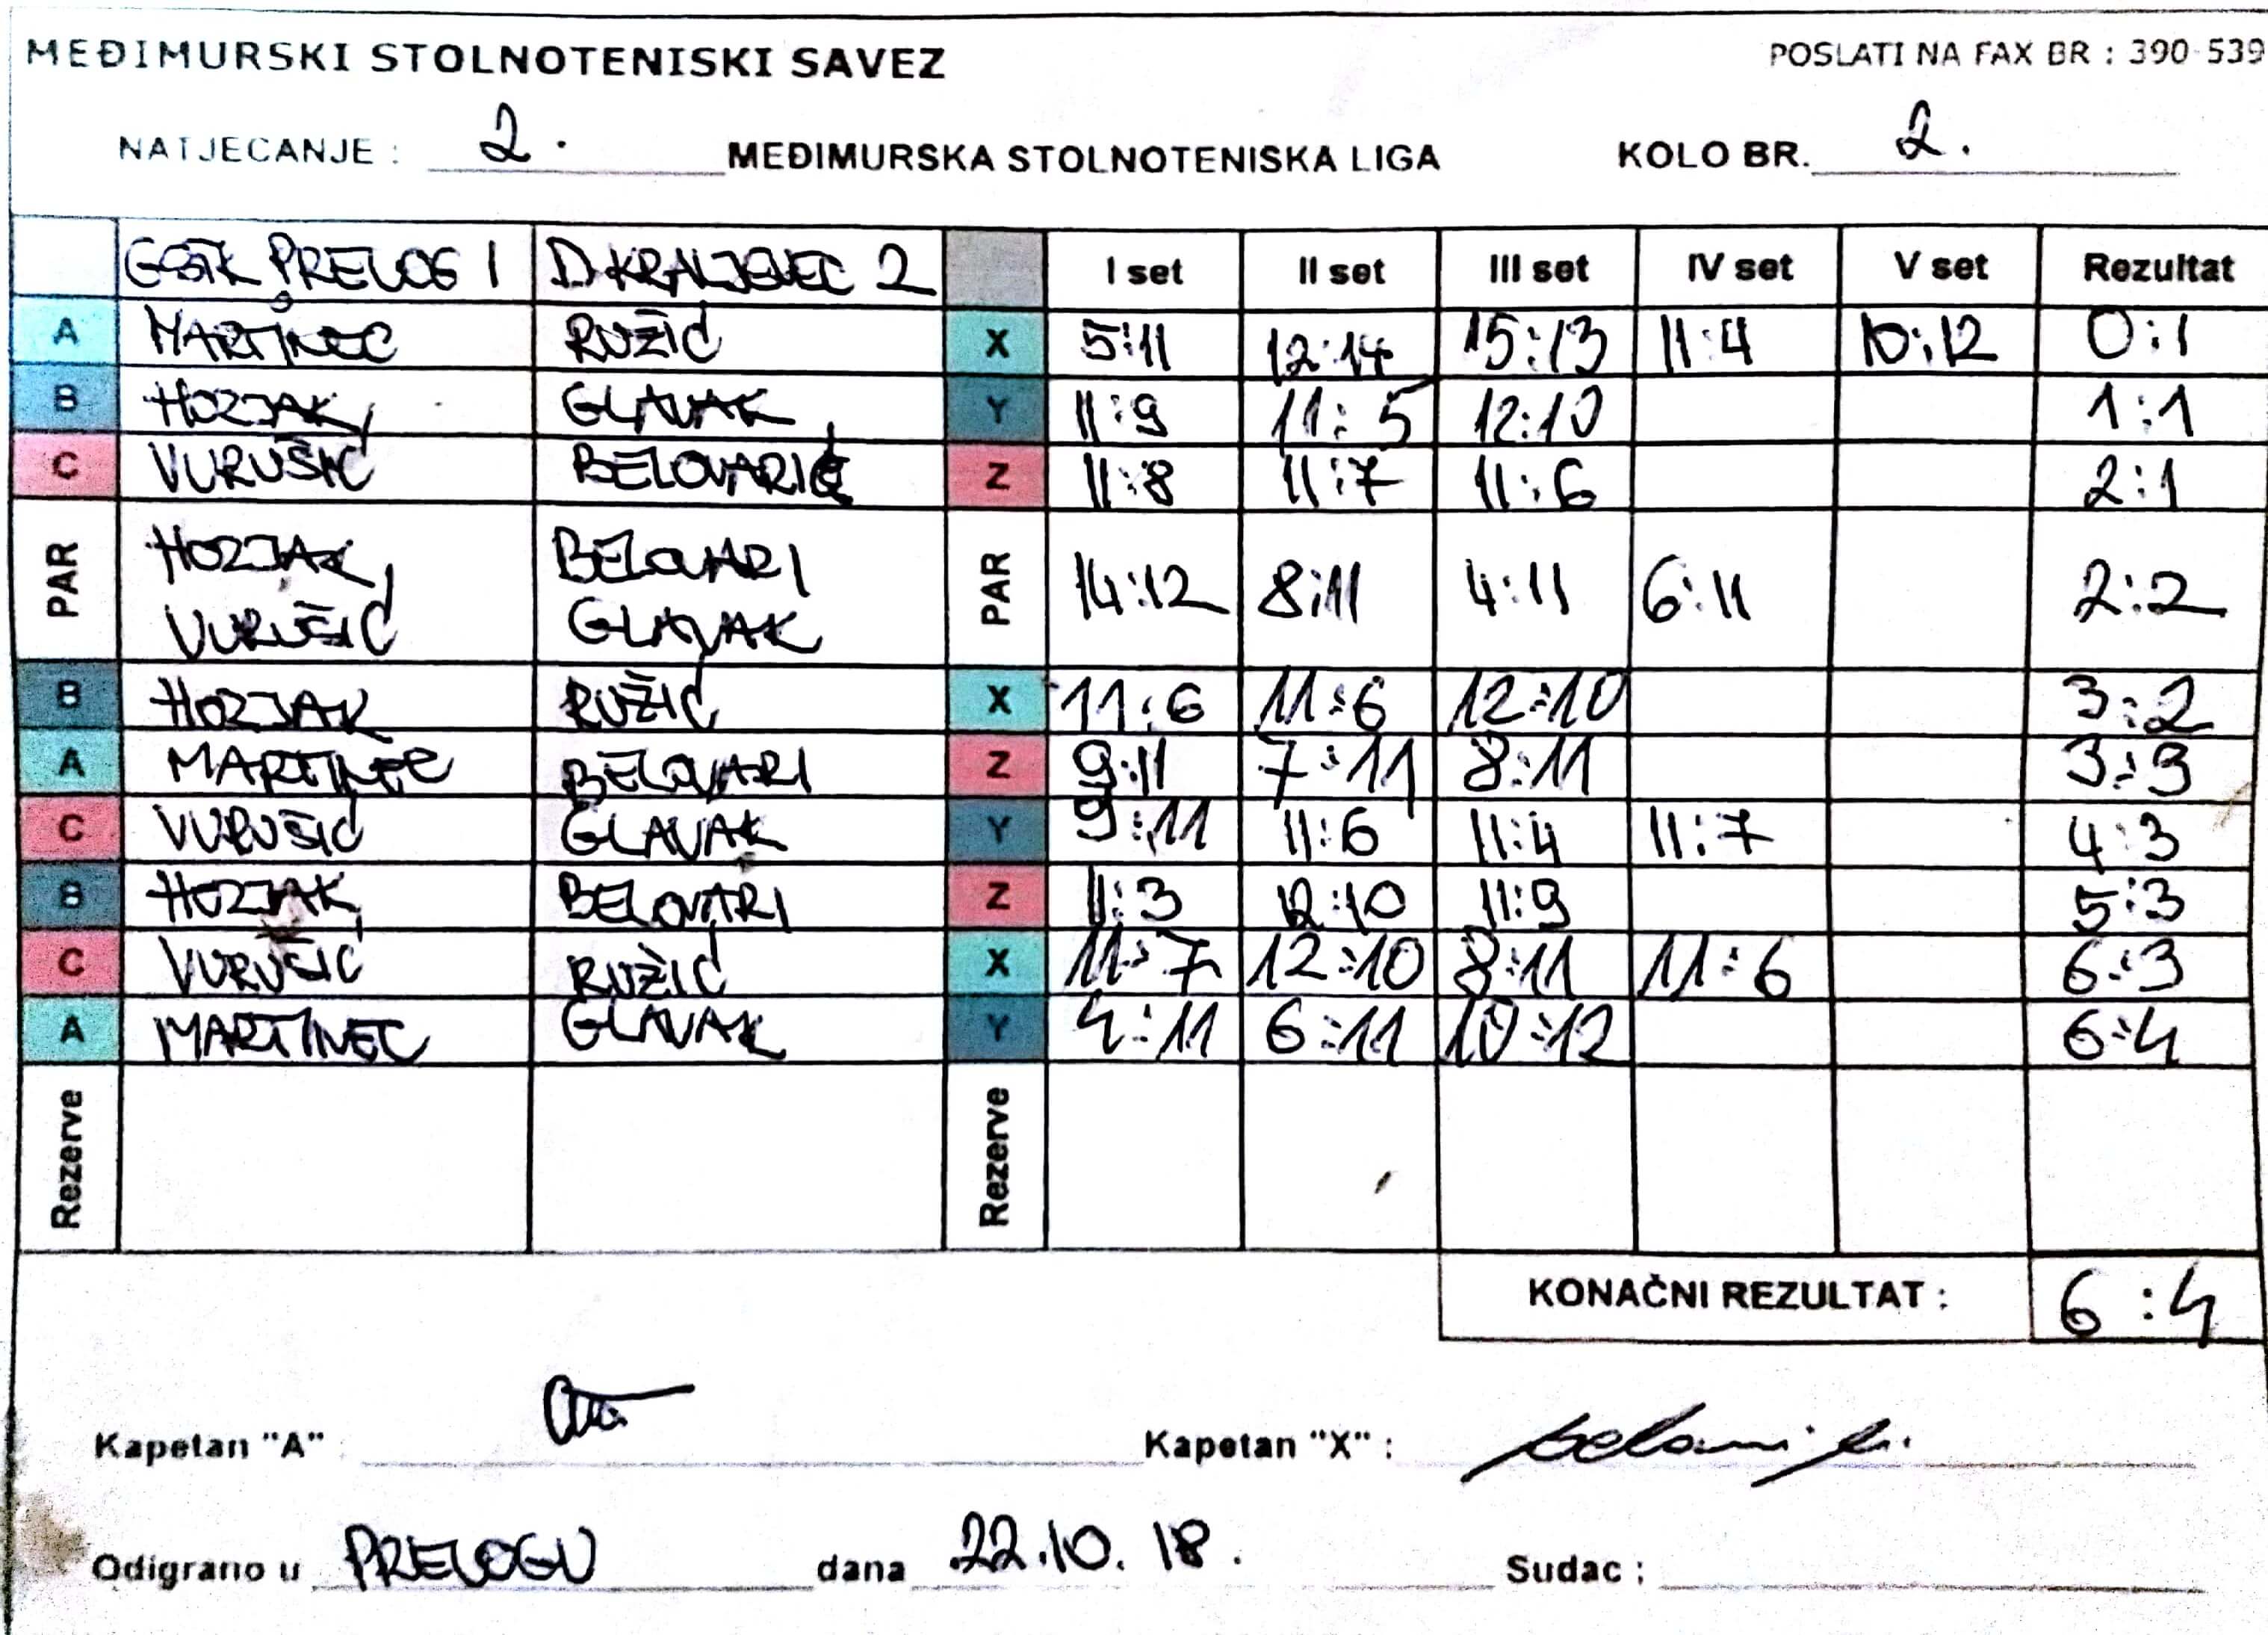 MEĐIMURSKI STOLNOTENISKI SAVEZ POSLATI NA FAX BR : 390-539
NATJECANJE : 2. MEĐIMURSKA STOLNOTENISKA LIGA KOLO BR. 2.
PRELOG 1 D.KRALJEVEC 2 I set II set III set IV set V set Rezultat
A MARTINEC RUŽIĆ X 5:11 12:14 15:13 11:4 10:12 0:1
B HOZJAK GLAVAK Y 11:9 11:5 12:10 1:1
C VURUŠIĆ BELOVARI Z 11:8 11:7 11:6 2:1
PAR HOZJAK BELOVARI PAR 14:12 8:11 4:11 6:11 2:2
VURUŠIĆ GLAVAK
B HOZJAK RUŽIĆ X 11:6 11:6 12:10 3:2
A MARTINEC BELOVARI Z 9:11 7:11 8:11 3:3
C VURUŠIĆ GLAVAK Y 9:11 11:6 11:4 11:7 4:3
B HOZJAK BELOVARI Z 11:3 12:10 11:9 5:3
C VURUŠIĆ RUŽIĆ X 11:7 12:10 8:11 11:6 6:3
A MARTINEC GLAVAK Y 4:11 6:11 10:12 6:4
Rezerve Rezerve
KONAČNI REZULTAT : 6:4
Kapetan "A" Kapetan "X" :
Odigrano u PRELOGU dana 22.10.18. Sudac :